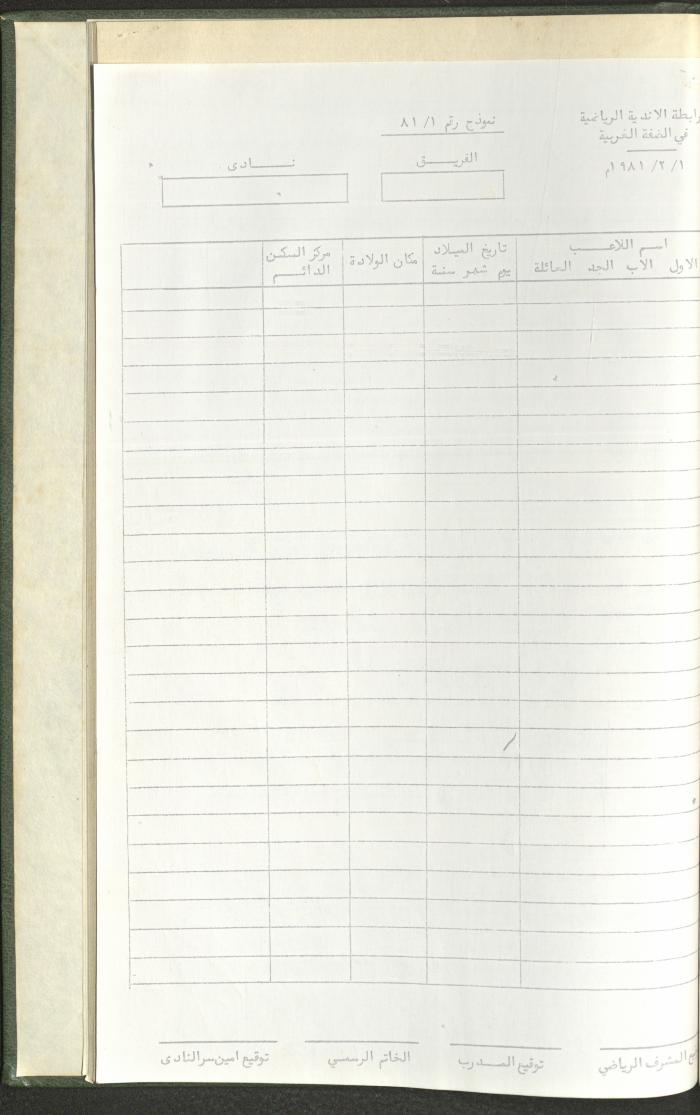 رابطة الاندية الرياضية
في الضفة الغربية
١/ ٢/ ١٩٨١م
نموذج رقم ١/ ٨١
الفريـــق
نـــــادى
اسـم اللاعـــــب
الاول الاب الجد العائلة
تاريخ الميـلاد
يوم شهر سنة
مكان الولادة
مركز السكـن
الدائـــم
توقيع المشرف الرياضي
توقيع المـــدرب
الخاتم الرسمـي
توقيع امين سر النادى